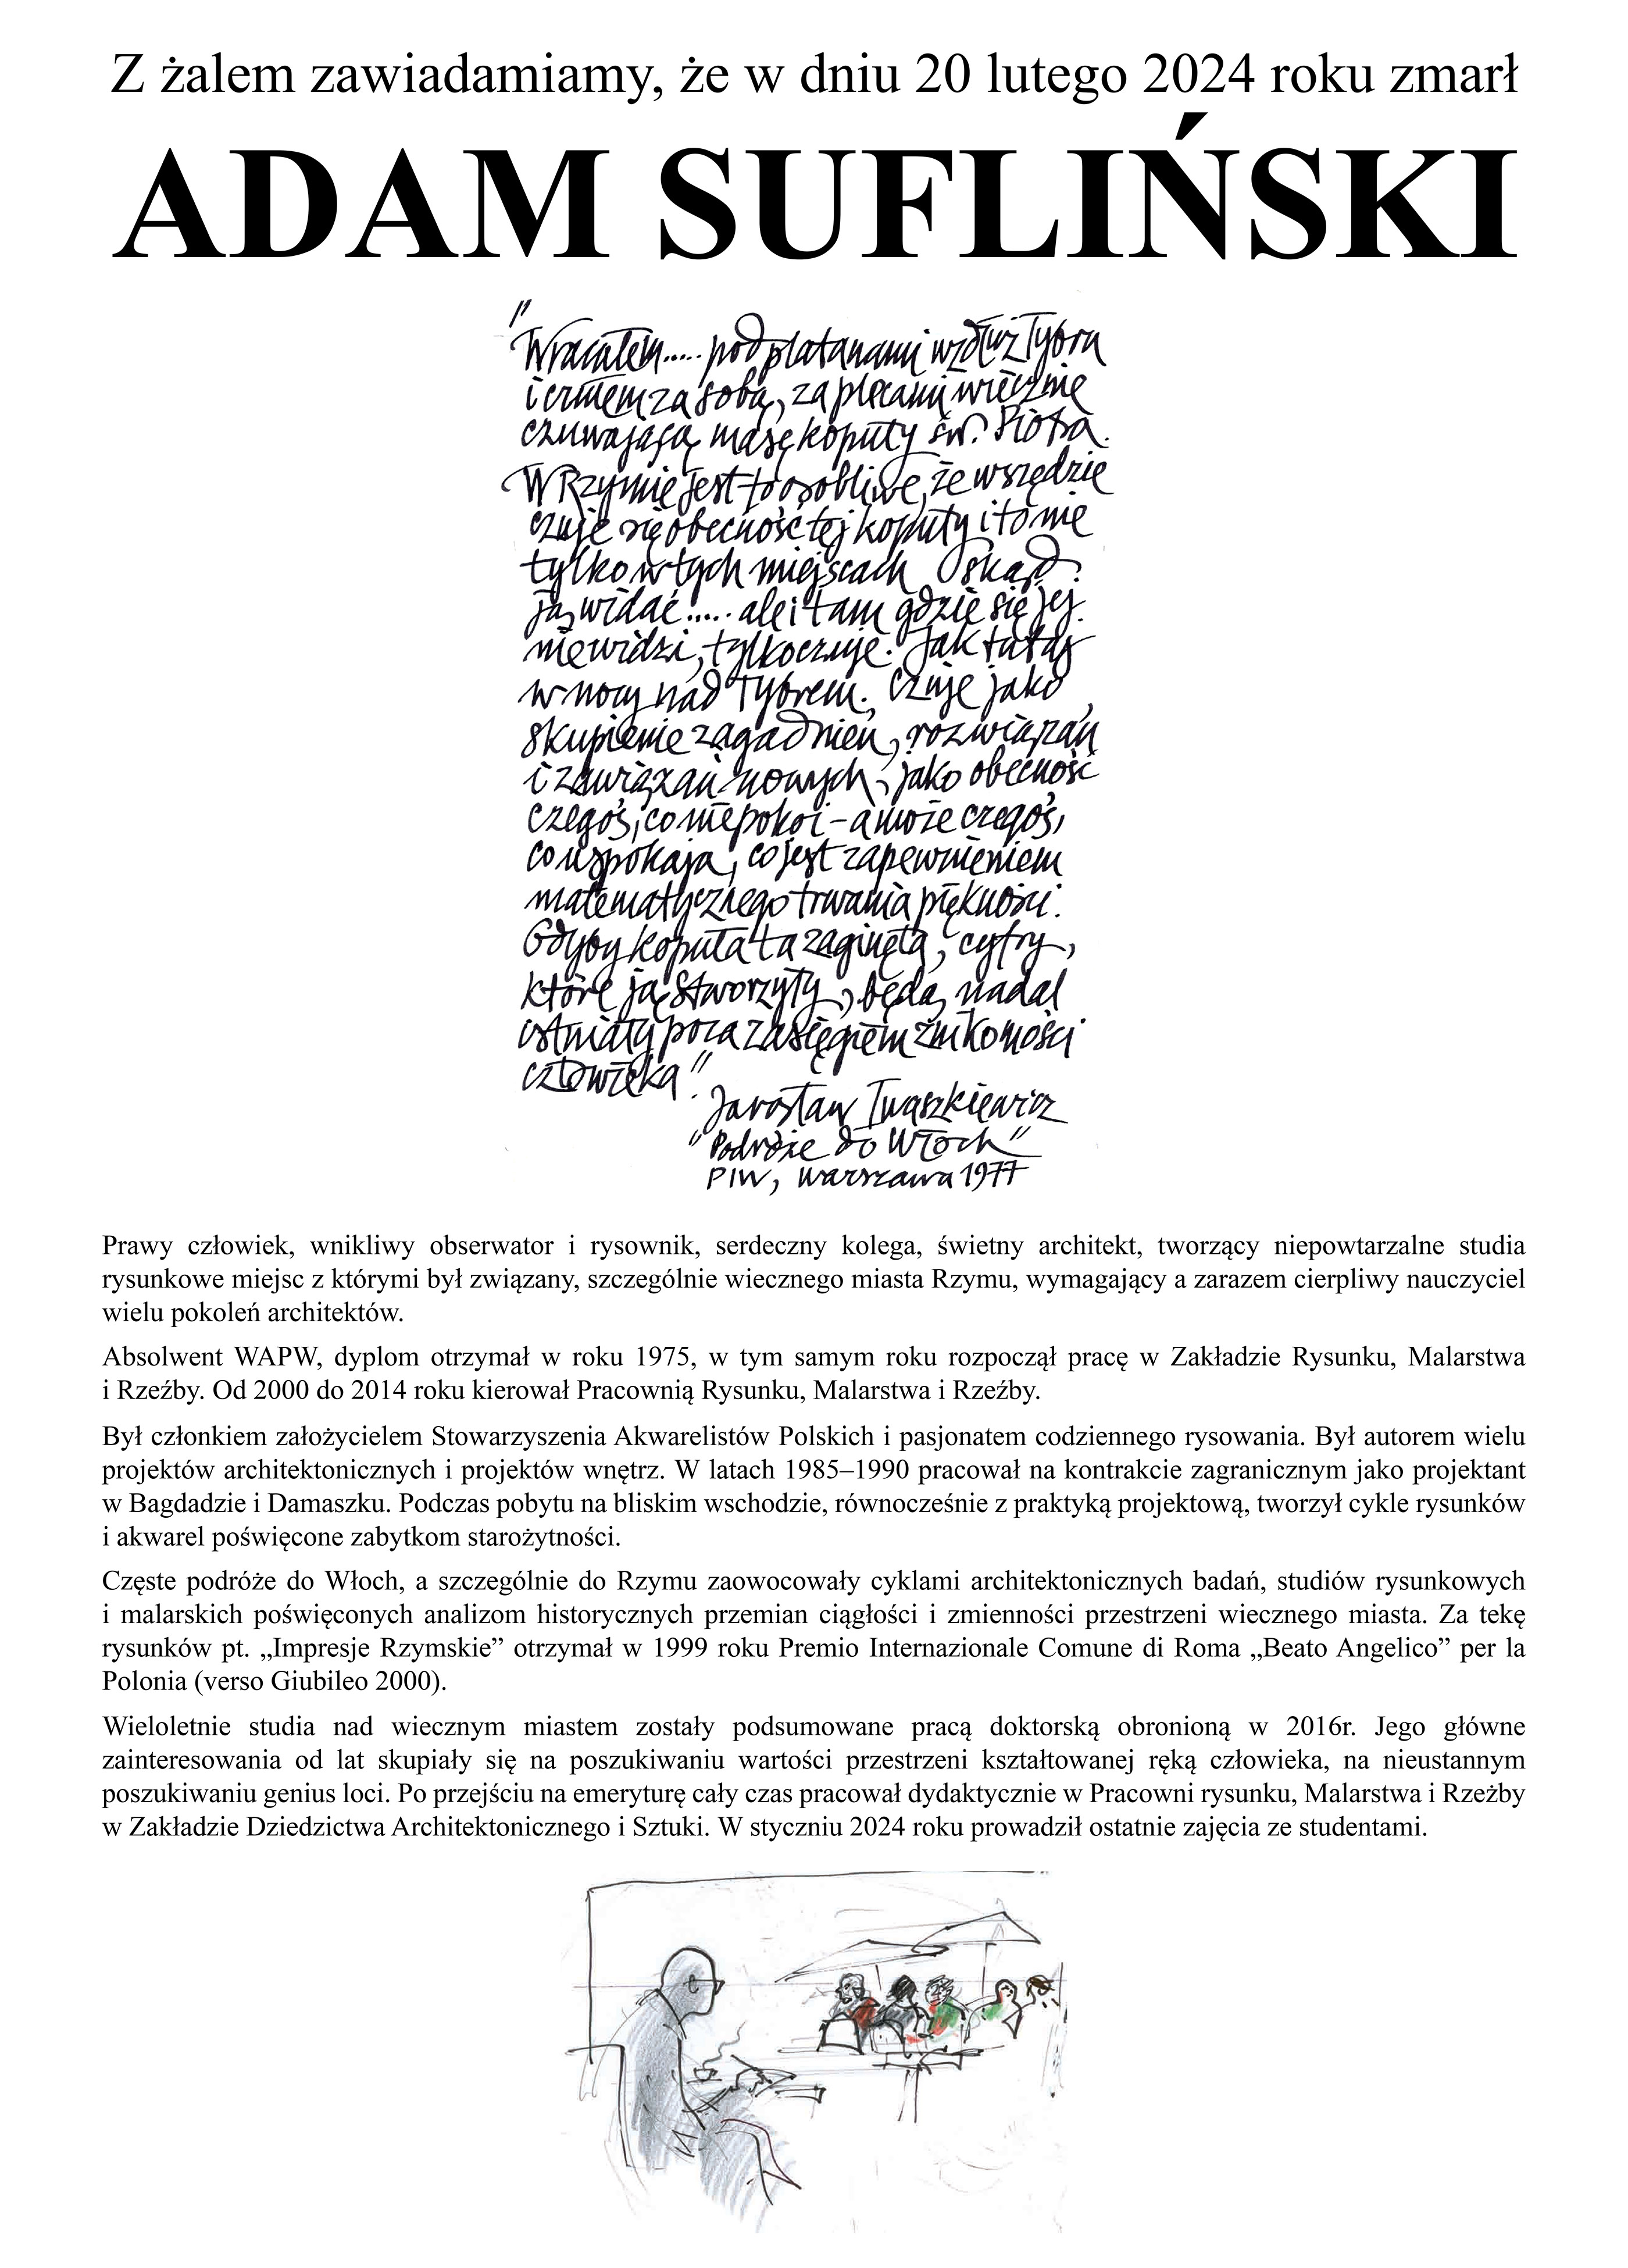 Z żalem zawiadamiamy, że w dniu 20 lutego 2024 roku zmarł
ADAM SUFLIŃSKI
"Wracałem..... pod platanami wzdłuż Tybru
i czułem za sobą, za plecami wiecznie
czuwającą masę kopuły św. Piotra.
W Rzymie jest to osobliwe, że wszędzie
czuje się obecność tej kopuły i to nie
tylko w tych miejscach skąd
ją widać..... ale i tam gdzie się jej
nie widzi, tylko czuje. Jak tutaj
w nocy nad Tybrem. Czuje jako
skupienie zagadnień, rozwiązań
i zawiązań nowych, jako obecność
czegoś, co niepokoi – a może czegoś,
co uspokaja, co jest zapewnieniem
matematycznego trwania piękności.
Gdyby kopuła ta zaginęła, cyfry,
które ją stworzyły, będą nadal
istniały poza zasięgiem znikomości
człowieka".
Jarosław Iwaszkiewicz
"Podróże do Włoch"
PIW, Warszawa 1977
Prawy człowiek, wnikliwy obserwator i rysownik, serdeczny kolega, świetny architekt, tworzący niepowtarzalne studia
rysunkowe miejsc z którymi był związany, szczególnie wiecznego miasta Rzymu, wymagający a zarazem cierpliwy nauczyciel
wielu pokoleń architektów.
Absolwent WAPW, dyplom otrzymał w roku 1975, w tym samym roku rozpoczął pracę w Zakładzie Rysunku, Malarstwa
i Rzeźby. Od 2000 do 2014 roku kierował Pracownią Rysunku, Malarstwa i Rzeźby.
Był członkiem założycielem Stowarzyszenia Akwarelistów Polskich i pasjonatem codziennego rysowania. Był autorem wielu
projektów architektonicznych i projektów wnętrz. W latach 1985–1990 pracował na kontrakcie zagranicznym jako projektant
w Bagdadzie i Damaszku. Podczas pobytu na bliskim wschodzie, równocześnie z praktyką projektową, tworzył cykle rysunków
i akwarel poświęcone zabytkom starożytności.
Częste podróże do Włoch, a szczególnie do Rzymu zaowocowały cyklami architektonicznych badań, studiów rysunkowych
i malarskich poświęconych analizom historycznych przemian ciągłości i zmienności przestrzeni wiecznego miasta. Za tekę
rysunków pt. „Impresje Rzymskie” otrzymał w 1999 roku Premio Internazionale Comune di Roma „Beato Angelico” per la
Polonia (verso Giubileo 2000).
Wieloletnie studia nad wiecznym miastem zostały podsumowane pracą doktorską obronioną w 2016r. Jego główne
zainteresowania od lat skupiały się na poszukiwaniu wartości przestrzeni kształtowanej ręką człowieka, na nieustannym
poszukiwaniu genius loci. Po przejściu na emeryturę cały czas pracował dydaktycznie w Pracowni rysunku, Malarstwa i Rzeżby
w Zakładzie Dziedzictwa Architektonicznego i Sztuki. W styczniu 2024 roku prowadził ostatnie zajęcia ze studentami.